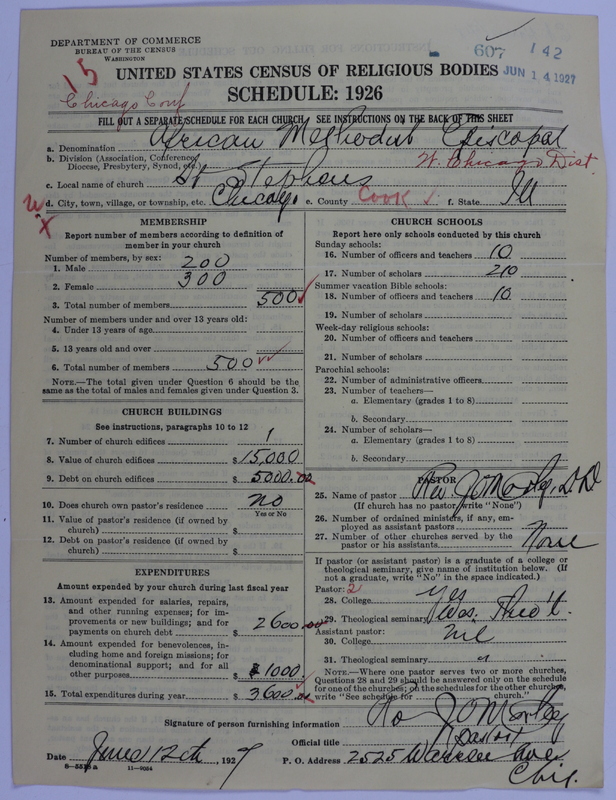 DEPARTMENT OF COMMERCE
BUREAU OF THE CENSUS
WASHINGTON
607 142
JUN 14 1927
15
Chicago Conf
UNITED STATES CENSUS OF RELIGIOUS BODIES
SCHEDULE: 1926
FILL OUT A SEPARATE SCHEDULE FOR EACH CHURCH SEE INSTRUCTIONS ON THE BACK OF THIS SHEET
a. Denomination African Methodist Episcopal
b. Division (Association, Conference, Diocese, Presbytery, Synod, etc.) W. Chicago Dist.
c. Local name of church St Stephens
d. City, town, village, or township, etc. Chicago e. County Cook f. State Ill
MEMBERSHIP
Report number of members according to definition of
member in your church
Number of members, by sex:
1. Male 200
2. Female 300
3. Total number of members 500
Number of members under and over 13 years old:
4. Under 13 years of age
5. 13 years old and over
6. Total number of members 500
NOTE.—The total given under Question 6 should be the
same as the total of males and females given under Question 3.
CHURCH BUILDINGS
See instructions, paragraphs 10 to 12
7. Number of church edifices 1
8. Value of church edifices $15,000
9. Debt on church edifices $5000.00
10. Does church own pastor's residence no
Yes or No
11. Value of pastor's residence (if owned by
church) $
12. Debt on pastor's residence (if owned by
church) $
EXPENDITURES
Amount expended by your church during last fiscal year
13. Amount expended for salaries, repairs,
and other running expenses; for im-
provements or new buildings; and for
payments on church debt $ 2600.00
14. Amount expended for benevolences, in-
cluding home and foreign missions; for
denominational support; and for all
other purposes $1000
15. Total expenditures during year $3600.00
CHURCH SCHOOLS
Report here only schools conducted by this church
Sunday schools:
16. Number of officers and teachers 10
17. Number of scholars 210
Summer vacation Bible schools:
18. Number of officers and teachers 10
19. Number of scholars
Week-day religious schools:
20. Number of officers and teachers
21. Number of scholars
Parochial schools:
22. Number of administrative officers
23. Number of teachers—
a. Elementary (grades 1 to 8)
b. Secondary
24. Number of scholars—
a. Elementary (grades 1 to 8)
b. Secondary
PASTOR
25. Name of pastor Rev. J O Morley, D.D
(If church has no pastor write "None")
26. Number of ordained ministers, if any, em-
ployed as assistant pastors
27. Number of other churches served by the
pastor or his assistants None
If pastor (or assistant pastor) is a graduate of a college or
theological seminary, give name of institution below. (If
not a graduate, write "No" in the space indicated.)
Pastor: 2
28. College yes
29. Theological seminary Theo'l.
Assistant pastor:
30. College Nil
31. Theological seminary "
NOTE.—Where one pastor serves two or more churches,
Questions 28 and 29 should be answered only on the schedule
for one of the churches; on the schedules for the other churches,
write "See schedule for church."
Signature of person furnishing information J O Morley
Official title Pastor
Date June 12th, 1927 P. O. Address 2525 Warren Ave
Chi.
8—5515 a 11—9084